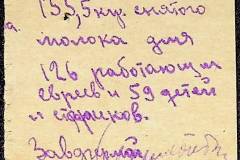 155,5 кгр. снятого
молока для
126 работающих
евреев и 59 детей
и стариков.
Завфермой